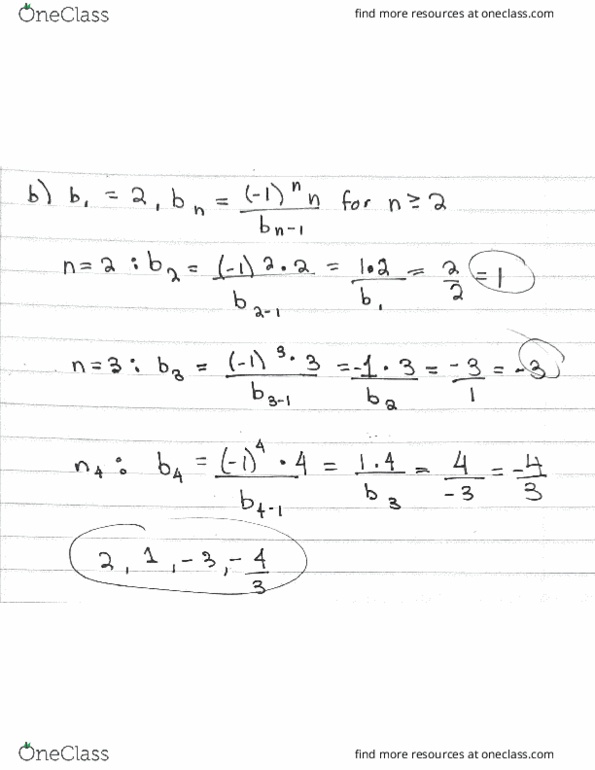 OneClass find more resources at oneclass.com
b) b₁ = 2, bₙ = (-1)ⁿn / bₙ₋₁ for n ≥ 2
n=2 : b₂ = (-1)²·2 / b₂₋₁ = 1·2 / b₁ = 2/2 = 1
n=3: b₃ = (-1)³·3 / b₃₋₁ = -1·3 / b₂ = -3/1 = -3
n₄: b₄ = (-1)⁴·4 / b₄₋₁ = 1·4 / b₃ = 4/-3 = -4/3
2, 1, -3, -4/3
OneClass find more resources at oneclass.com